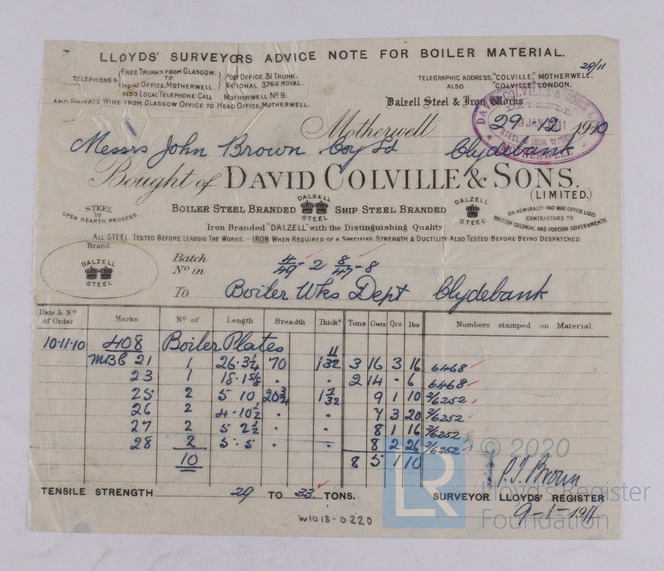 LLOYDS' SURVEYORS ADVICE NOTE FOR BOILER MATERIAL.
29/11
TELEPHONES { FREE TRUNKS FROM GLASGOW. TO HEAD OFFICE, MOTHERWELL } { POST OFFICE 31 TRUNK. NATIONAL 3766 ROYAL.
ALSO LOCAL TELEPHONE CALL MOTHERWELL No 9.
AND PRIVATE WIRE FROM GLASGOW OFFICE TO HEAD OFFICE, MOTHERWELL.
TELEGRAPHIC ADDRESS, "COLVILLE", MOTHERWELL.
ALSO "COLVILLE", LONDON.
Dalzell Steel & Iron Works
Motherwell 29.12 1910
Messrs John Brown Coy Ld Clydebank
Bought of DAVID COLVILLE & SONS, (LIMITED.)
STEEL BY OPEN HEARTH PROCESS.
BOILER STEEL BRANDED DALZELL STEEL SHIP STEEL BRANDED DALZELL STEEL
ON ADMIRALTY AND WAR OFFICE LISTS
CONTRACTORS TO
BRITISH COLONIAL AND FOREIGN GOVERNMENTS.
Iron Branded "DALZELL" with the Distinguishing Quality
ALL STEEL TESTED BEFORE LEAVING THE WORKS.—IRON WHEN REQUIRED OF A SPECIFIED STRENGTH & DUCTILITY ALSO TESTED BEFORE BEING DESPATCHED.
Brand
DALZELL STEEL
Batch No in 4/49-2 8/47-8
To Boiler Wks Dept Clydebank
Date & No of Order Marks No of Length Breadth Thick' Tons Cwts Qrs lbs Numbers stamped on Material.
10-11-10 408 Boiler Plates
21 1 26-3¼ 70 1 11/32 3 16 3 16 6468
23 1 18-1⅝ . . 2 14 - 6 6468
25 2 5 10 20¾ 1 7/32 9 1 10 2/6252
26 2 4-10½ . . 7 3 20 2/6252
27 2 5 2½ . . 8 1 16 2/6252
28 2 5-5 . . 8 2 26 2/6252
10 8 5 1 10
TENSILE STRENGTH 29 TO 33 TONS.
SURVEYOR LLOYDS' REGISTER
9-1-1911
W1018-0220
© 2020
LR Lloyd's Register
Foundation